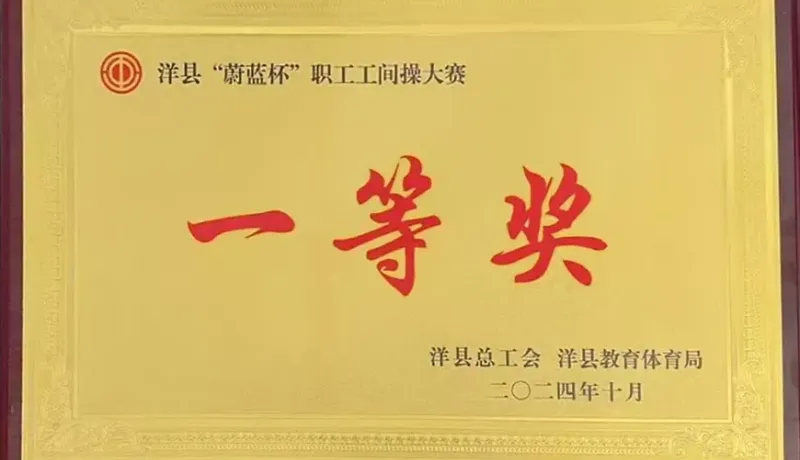 洋县“蔚蓝杯”职工工间操大赛
一等奖
洋县总工会 洋县教育体育局
二〇二四年十月